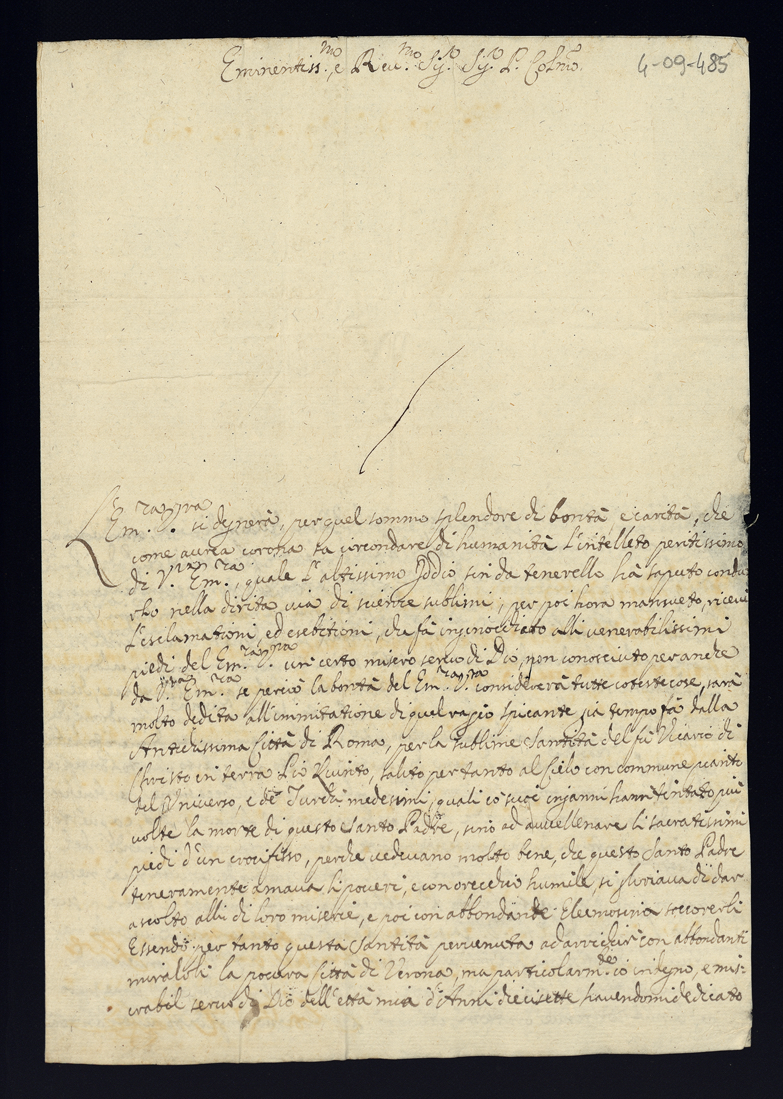 Eminentiss.mo e Reu.mo Sig.r Sig.r P. Colmo.
4-09-485
L'Em.za V.ra si degnerà, per quel sommo splendore di bontà e carità, che
come aurea corona sa circondare di humanità l'intelleto peritissimo
di V.ra Em.za, quale l'altissimo Iddio sin da tenerello hà saputo condu
rlo nella dirita via di scienze sublimi, per poi hora mansueto, riceui
l'esclamationi, ed esebitioni, che fà inginocchiato alli venerabilissimi
piedi del Em.za V.ra un certo misero seruo di Dio, non conosciuto per anche
da V.ra Em.za se perciò la bontà del Em.za V.ra considererà tutte coteste cose, sarà
molto dedita all'immitatione di quel ragio spicante già tempo fà dalla
Antichissima Città di Roma, per la sublime Santità del fù Vicario di
Christo in terra Pio Quinto, salito per tanto al Cielo con commune pianto
del Universo, e de Turchi medessimi, quali co suoi inganni hanno tentato più
volte la morte di questo Santo Padre, sino ad auuellenare li sacratissimi
piedi d'un crocifisso, perche vedeuano molto bene, che questo Santo Padre
teneramente amaua li poueri, e con orecchio humile, si gloriaua di dar
ascolto alli di loro miserie, e poi con abbondante Eleemosina soccorerli
Essendo per tanto questa Santità peruenuta ad arrichir con abbondanti
miraloli la pouera Città di Verona, ma particolarm.te io indegno, e mis:
erabil seruo di Dio dell'ettà mia d'Anni diecisette hauendomi dedicato